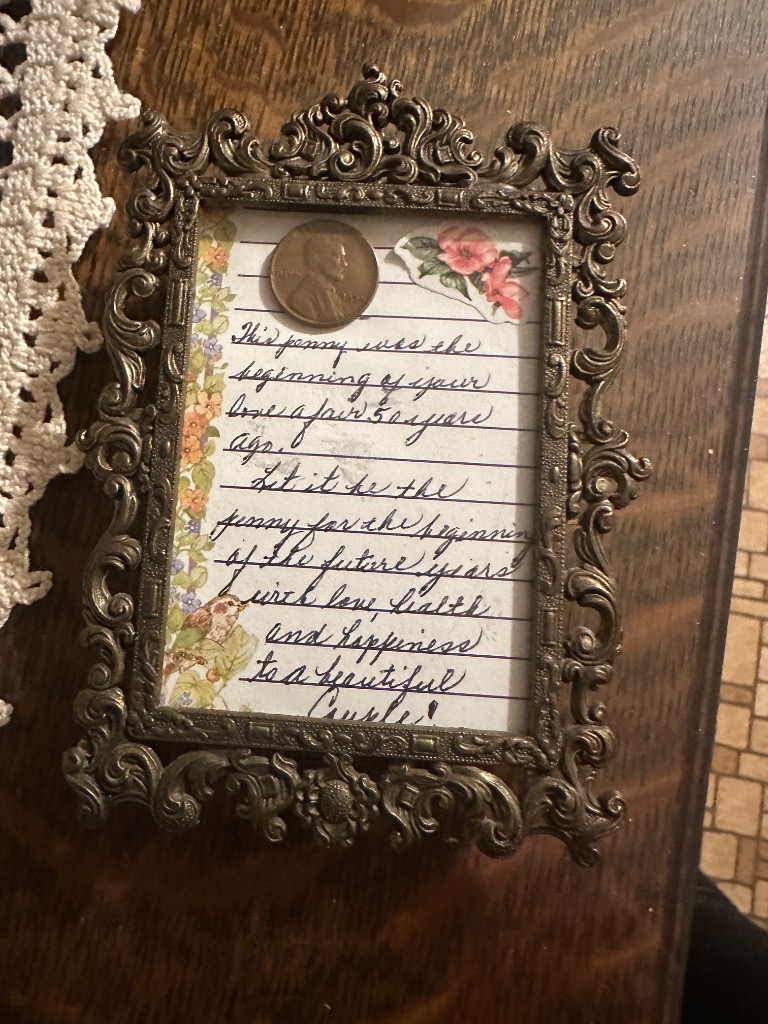 This penny was the
beginning of your
love afair 50 years
ago.
Let it be the
penny for the beginning
of the future years
with love, health
and happiness
to a beautiful
Couple!